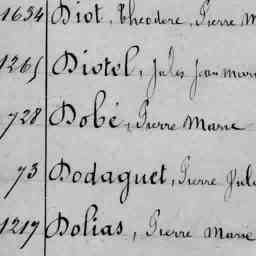 1634 Diot, Théodore, Pierre M
1265 Diotel, Jules Jean Mari
728 Dobé, Pierre Marie
73 Dodaguet, Pierre Jule
1217 Dolias, Pierre Marie